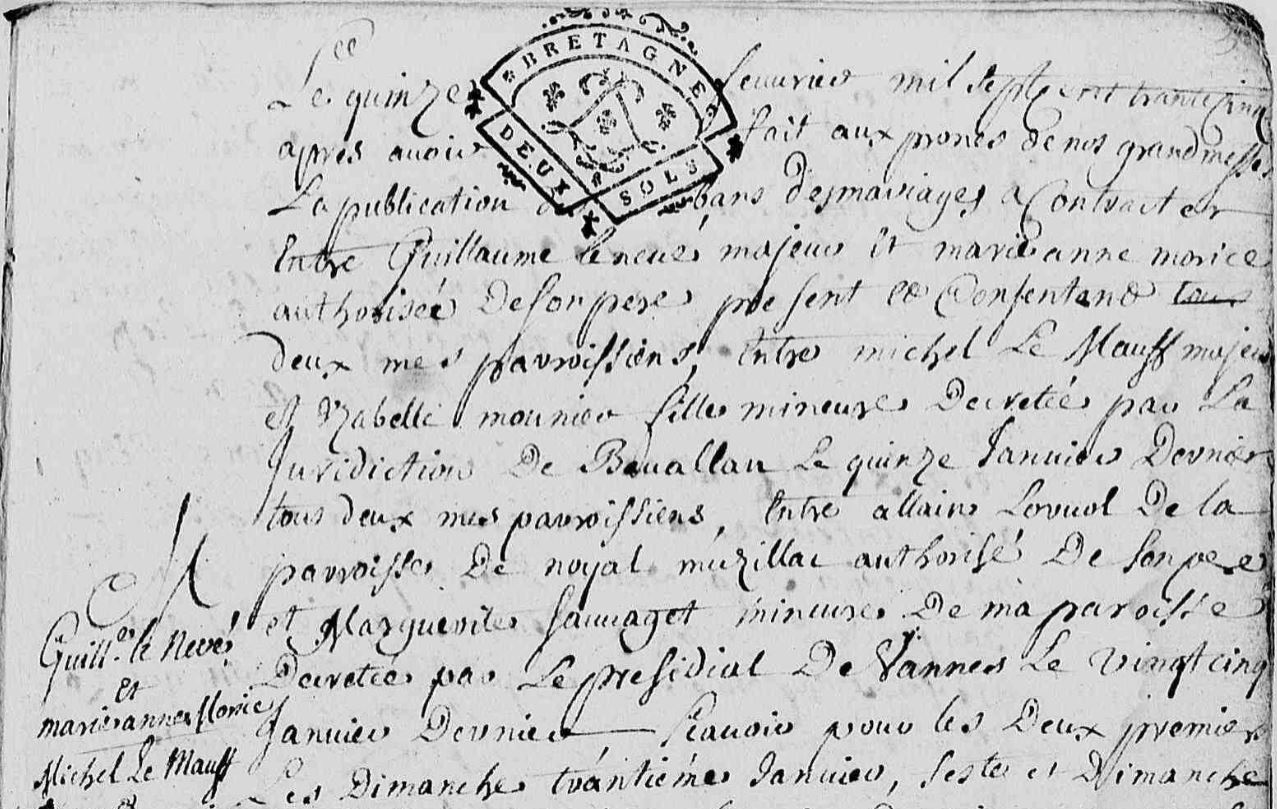 Le quinze feuvrier mil sept cent trante cinq
BRETAGNE
DEUX SOLS
apres avoir fait aux prones de nos grandmesses
La publication des bans des mariages a Contracter
Entre Guillaume le neué majeur Et marie anne morice
authorisée De son pere present et Consentend tous
deux mes parroissiens, Entre michel Le Mauff majeur
et Yzabelle mounier fille mineure Decretée par La
Juridiction De Beuallan Le quinze Januier Dernier
tous deux mes parroissiens, Entre allain Lorvol De la
parroisse De noyal muzillac authorisé De son pere
et Marguerite Sauvaget mineure De ma paroisse
Decretée par Le presidial De Vannes Le vingt cinq
Januier Dernier Scauoir pour les Deux premiers
Les Dimanche trantiéme Januier, feste et Dimanche
Guill.e le Nevé
et
marie anne Morice
Michel Le Mauff